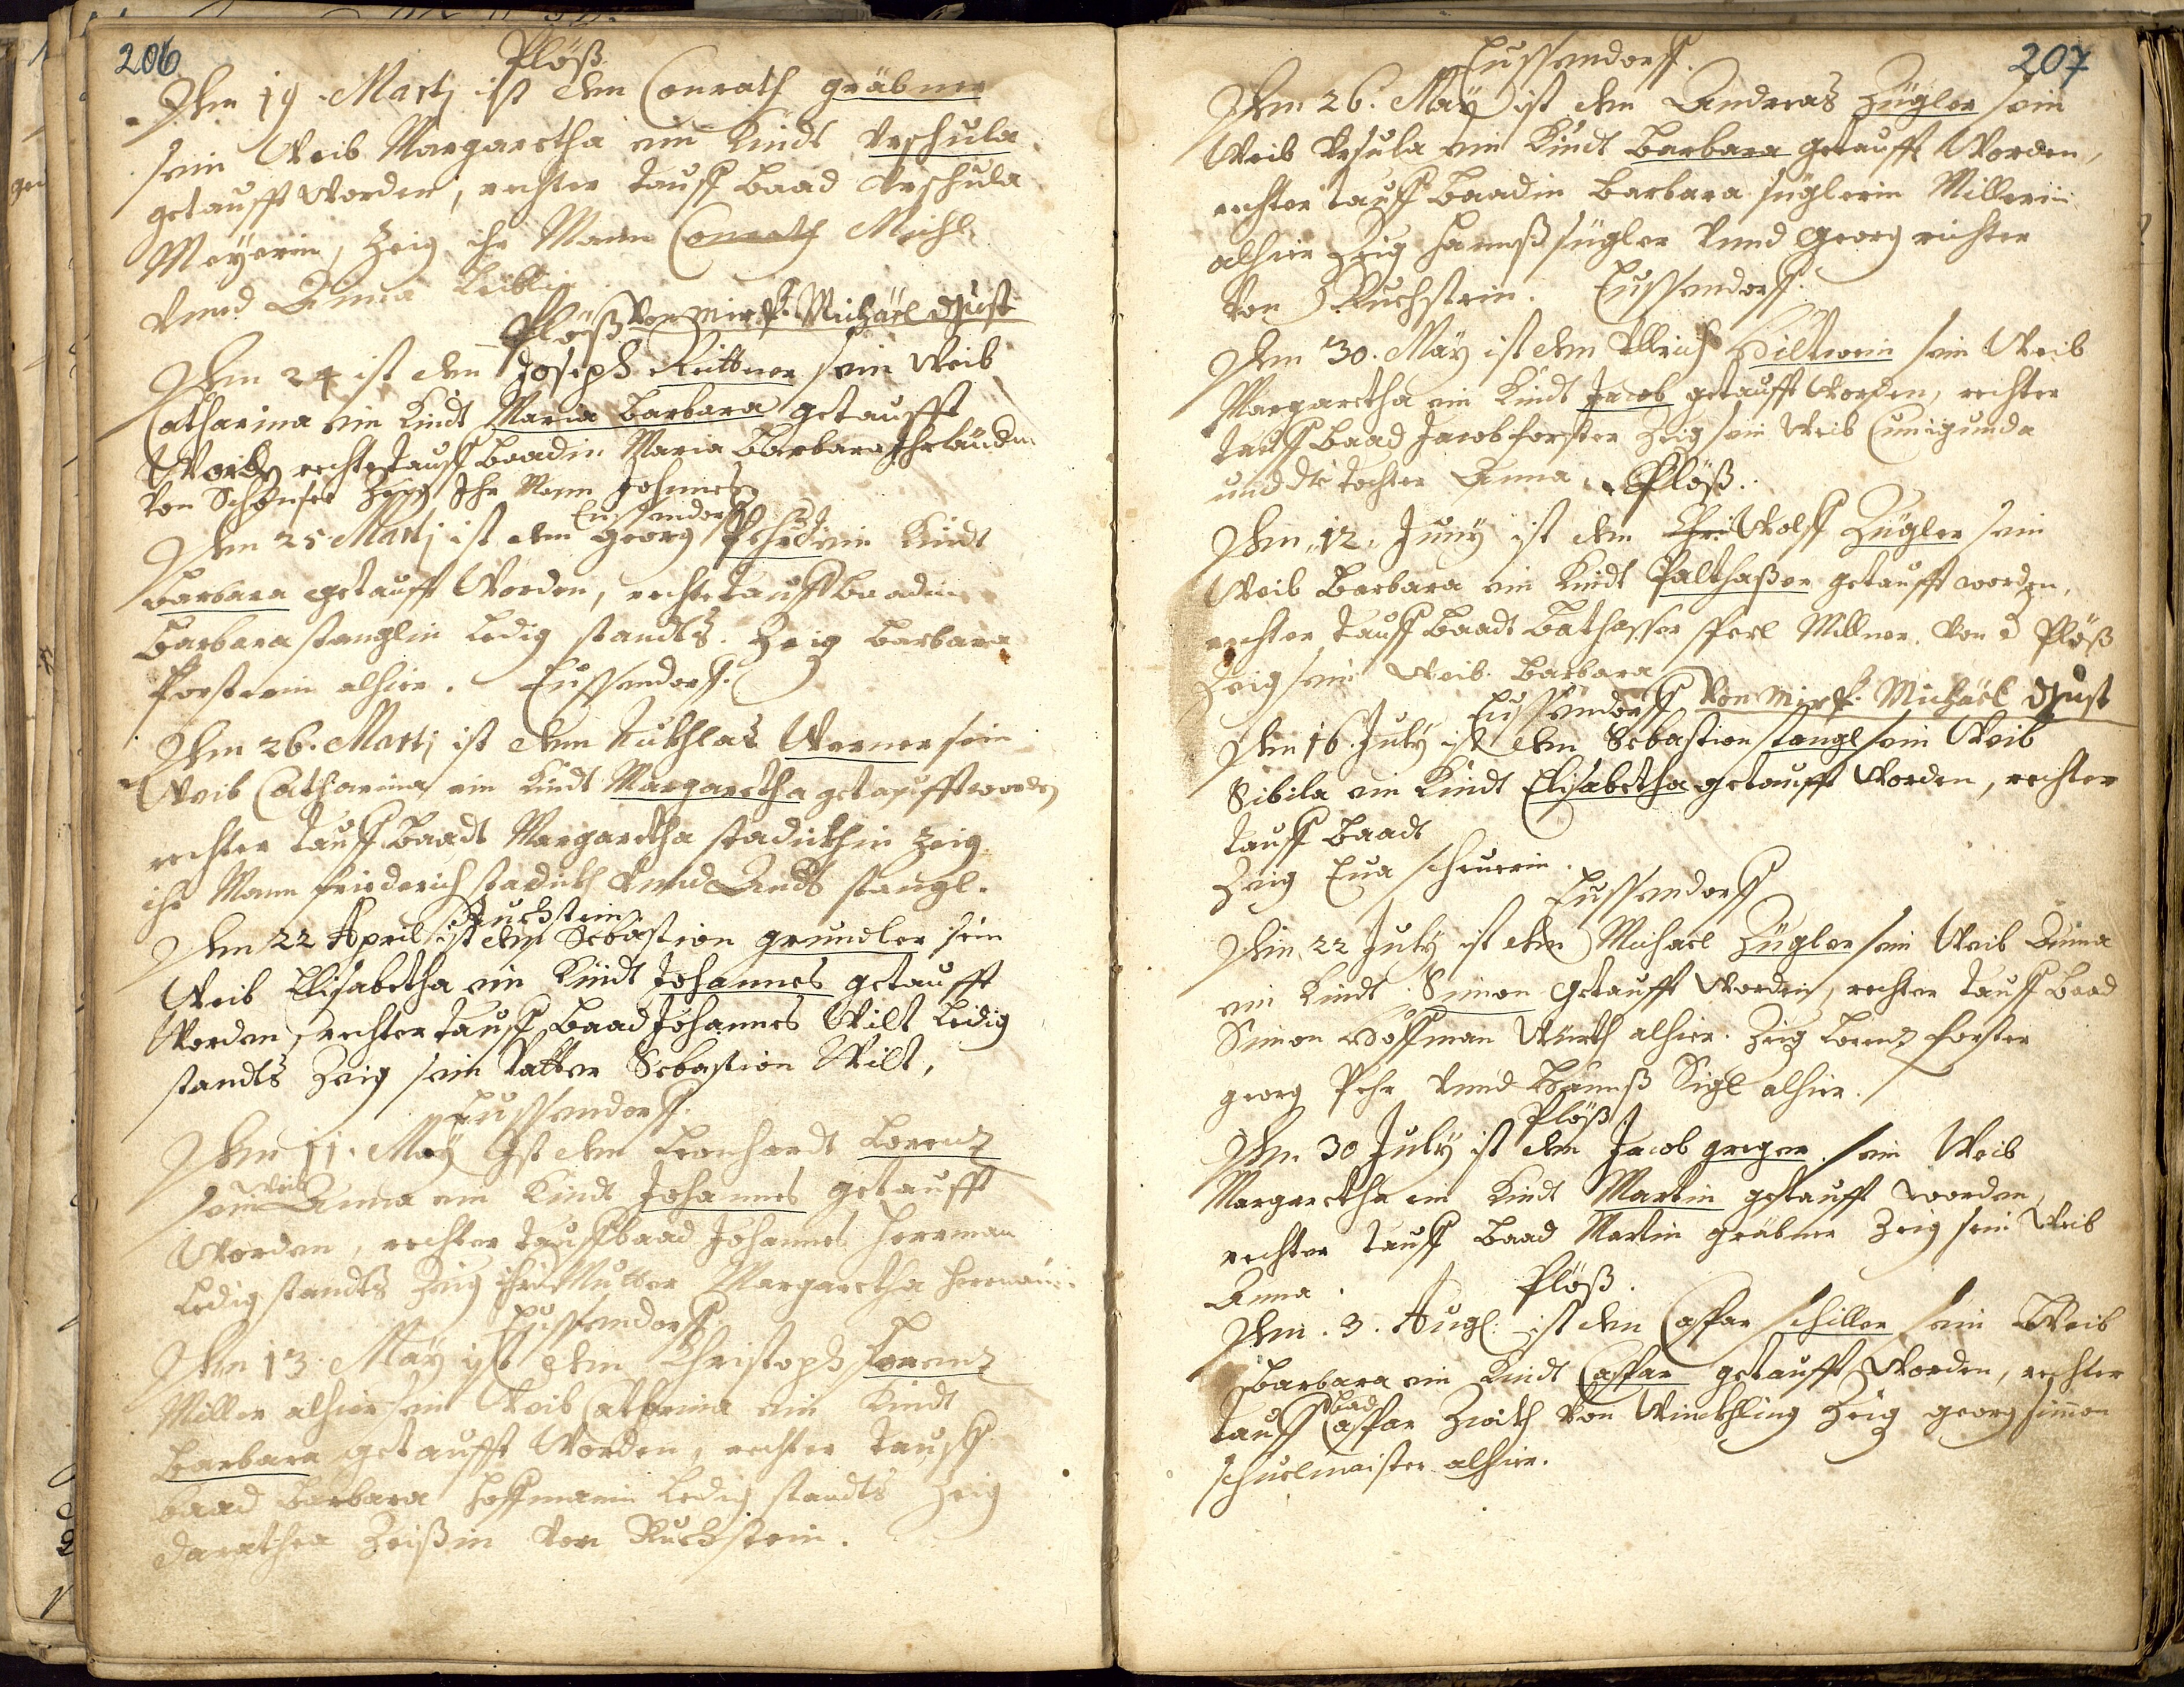 206
Plöß
Den 19. Martj ist dem Conrath gräbner
sein Weib Margaretha ein Kindt Vrschula
getaufft Worden, rechter tauff baad Vrschula
Meÿerin, Zeig ihr Mann Conrath Michl.
Vnnd Anna
Plöß Von mir P. Michäel Just
Den 24 ist dem Joseph Reittner sein Weib
Catharina ein Kindt Maria Barbara getaufft
Worden rechter tauff baadin Maria Barbara
Von Schönsee Zeig Ihr Mann Johannes
Eussendorff
Den 25 Martj ist dem georg ein Kindt
Barbara getaufft Worden, rechte tauff baadin
Barbara stanglin ledig standts. Zeig Barbara
Forsterin alhier. Eussendorff.
Den 26. Martj ist dem Nickhlas Werner sein
Weib Catharina ein Kindt Margaretha getaufft worden
rechter tauff baadt Margaretha stadickhin Zeig
ihr Mann friederich stadickh Vnnd Andts stangl.
Ruchstein
Den 22 April ist dem Sebastion grundler sein
Weib Elisabetha ein Kindt Johannes getaufft
Worden, rechter tauff baad Johannes Wilt ledig
standts Zeig sein Vatter Sebastion Wilt,
Eussendorff.
Den 11. Maÿ Ist dem Leonhardt Lorenz
sein Weib Anna ein Kindt Johannes getaufft
Worden, rechter tauffbaad Johannes Herrman
ledig standts Zeig ihr Mutter Margaretha
Eussendorff
Den 13. Maÿ ist dem Christoph Lorenz
Miller alhier sein Weib Catharina ein Kindt
Barbara getaufft Worden, rechter tauff
baad Barbara Hoffmanin ledig standts Zeig
Darathea Zeißin Von Ruchstein.
207
Eussendorff.
Den 26. Maÿ ist dem Andreas Zügler sein
Weib Vrsula ein Kindt Barbara getaufft Worden,
rechter tauff baadin Barbara süglerin Millerin
alhier Zeig hannß sügler Vnnd georg richter
Von Ruchstein. Eussendorff.
Den 30. Maÿ ist dem Vllrich sein Weib
Margaretha ein Kindt Jacob getaufft Worden, rechter
tauff baad Jacob forster Zeig sein Weib Cunigunda
und die tochter Anna. Plöß.
Den 12. Junÿ ist dem Chri Wolff Zügler sein
Weib Barbara ein Kindt Palthaßer getaufft worden,
rechter tauff baadt Bathasser Millner Von d Plöß
Zeig sein Weib Barbara
Eussendorff Von mir P. Michäel Just
Den 16. Julÿ ist dem Sebastion stangl sein Weib
Sibila ein Kindt Elisabetha getaufft Worden, rechter
tauff baadt
Zeig Eua
Eussendorff
Den 22 Julÿ ist dem Michael Zügler sein Weib Anna
ein Kindt Simon getaufft Worden, rechter tauff baad
Simon Hoffman Würth alhier. Zeig Lorenz forster
georg Vnnd Hannß Sigl alhier.
Plöß.
Den 30 Julÿ ist dem Jacob greger sein Weib
Margaretha ein Kindt Martin getaufft worden,
rechter tauff baad Martin gräbner Zeig sein Weib
Anna. Plöß.
Den. 3. Aug: ist dem Caspar schiller sein Weib
Barbara ein Kindt Caspar getaufft Worden, rechter
tauff baad Caspar Von Winckhling Zeig georg simon
schuelmaister alhier.